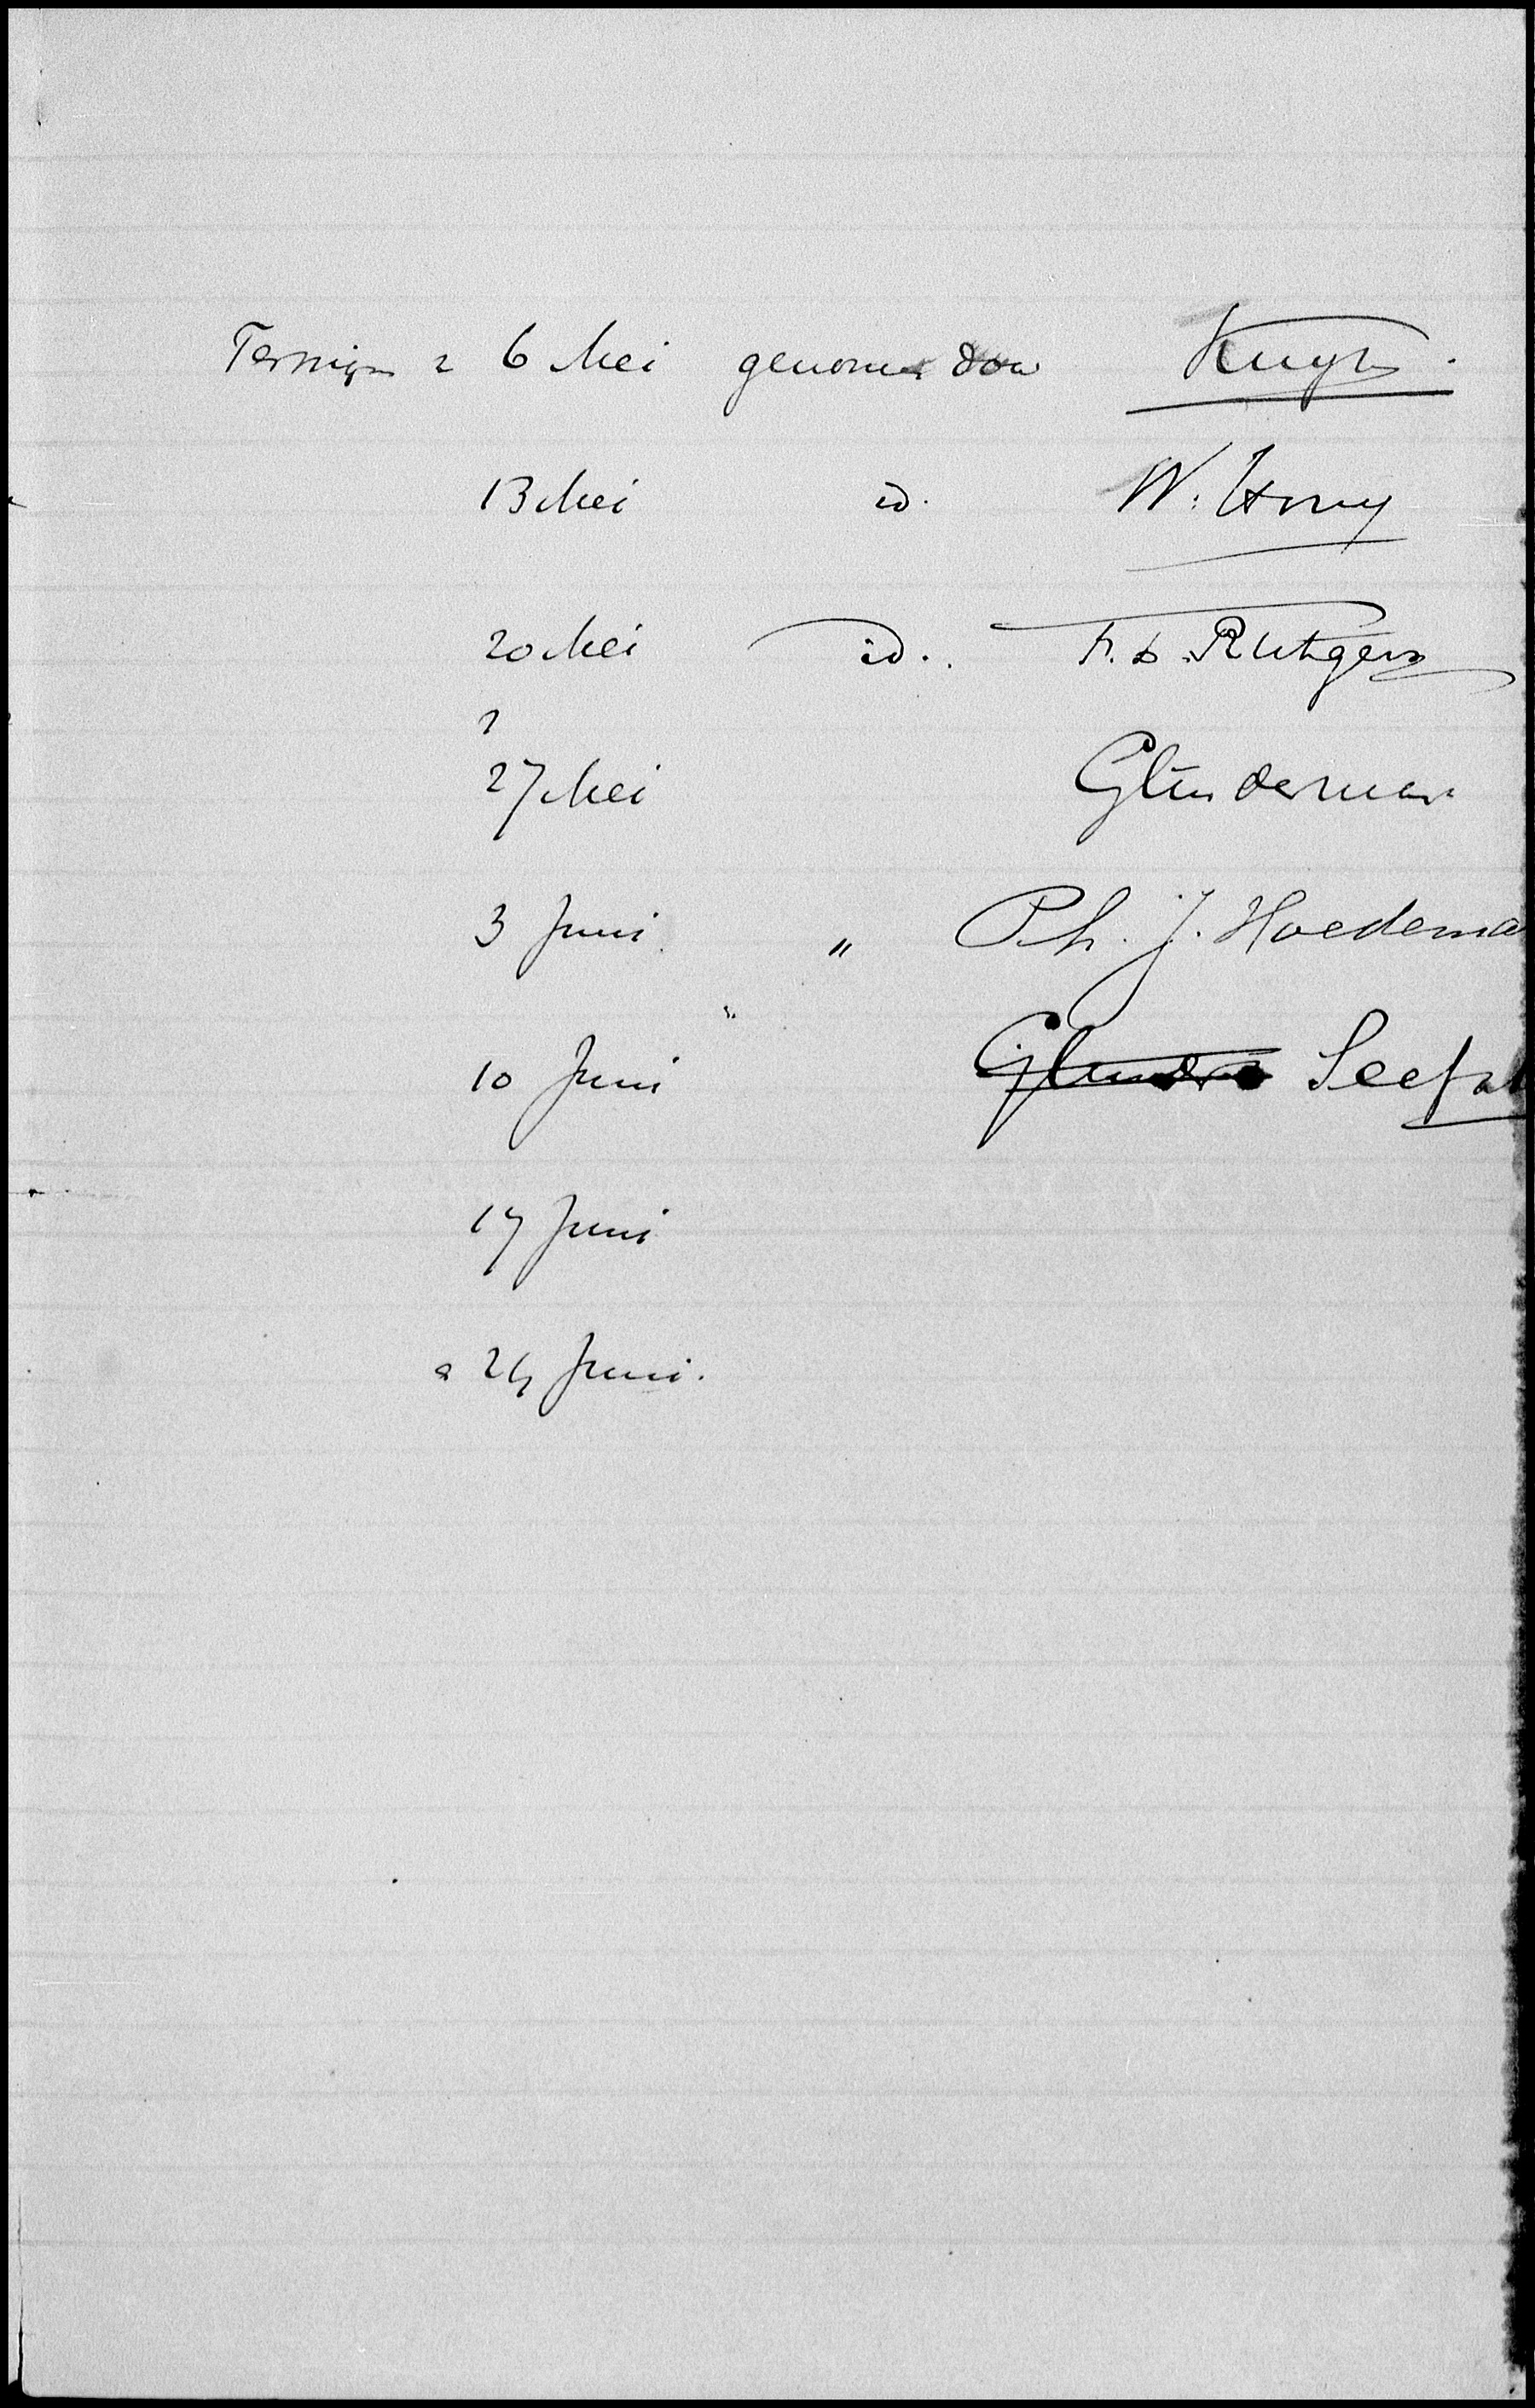 Termijn 2 6 Mei genomen door Kuyper.
13 Mei id. W. Hovy
20 Mei id. F. L. Rutgers
?
27 Mei Gunderman
3 Juni „ Ph. J. Hoedema
10 Juni „ Seefat
17 Juni
a 24 Juni.